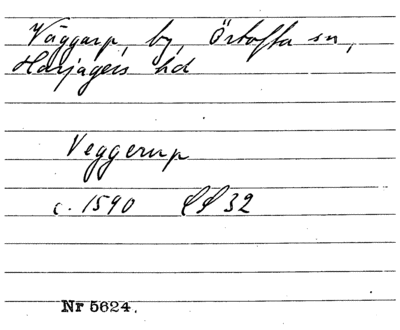 Väggarp, by, Örtofta sn,
Harjagers hd
Veggerup
c. 1590 LL 32
Nr 5624.